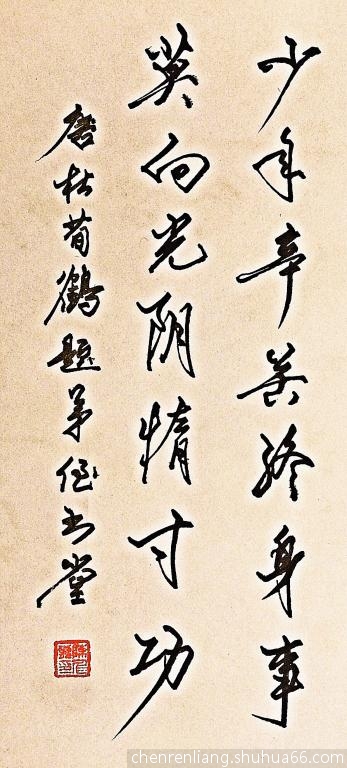 少年辛苦终身事
莫向光阴惰寸功
唐杜荀鹤题弟侄书堂
chenrenliang.shuhua66.com